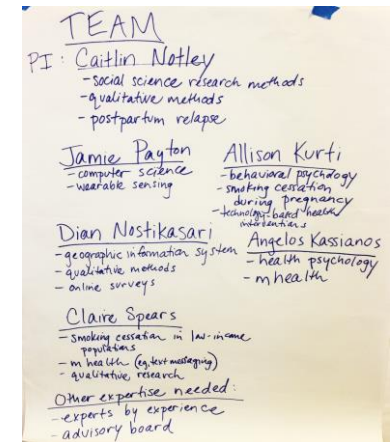 TEAM
PI: Caitlin Notley
- social science research methods
- qualitative methods
- postpartum relapse
Jamie Payton
- computer science
- wearable sensing
Allison Kurti
- behavioral psychology
- smoking cessation
during pregnancy
- technology-based health
interventions
Dian Nostikasari
- geographic information system
- qualitative methods
- online surveys
Angelos Kassianos
- health psychology
- mhealth
Claire Spears
- smoking cessation in low-income
populations
- mhealth (eg, text messaging)
- qualitative research
Other expertise needed:
- experts by experience
- advisory board